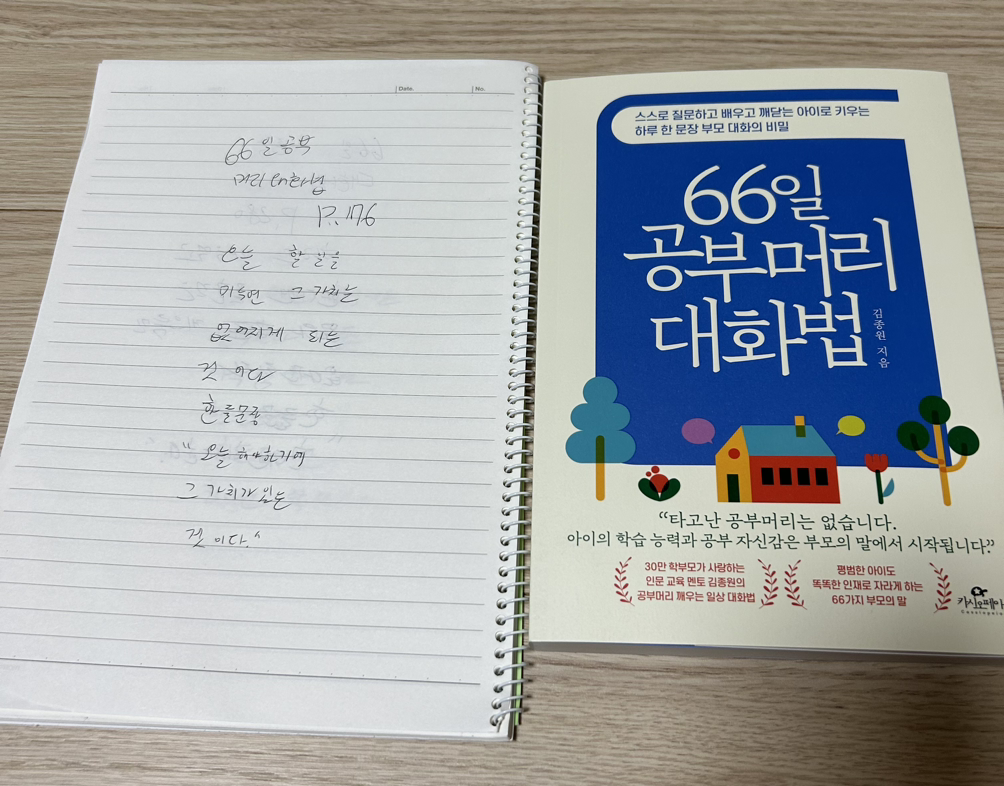 Date.
No.
66일 공부
머리 대화법
P. 176
오늘 할 일을
미루면 그 가치는
없어지게 되는
것 이다
한 줄 문장
"오늘 해야하기에
그 가치가 있는
것 이다."
스스로 질문하고 배우고 깨닫는 아이로 키우는
하루 한 문장 부모 대화의 비밀
66일
공부머리
대화법
김종원 지음
“타고난 공부머리는 없습니다.
아이의 학습 능력과 공부 자신감은 부모의 말에서 시작됩니다.”
30만 학부모가 사랑하는
인문 교육 멘토 김종원의
공부머리 깨우는 일상 대화법
평범한 아이도
똑똑한 인재로 자라게 하는
66가지 부모의 말
카시오페아